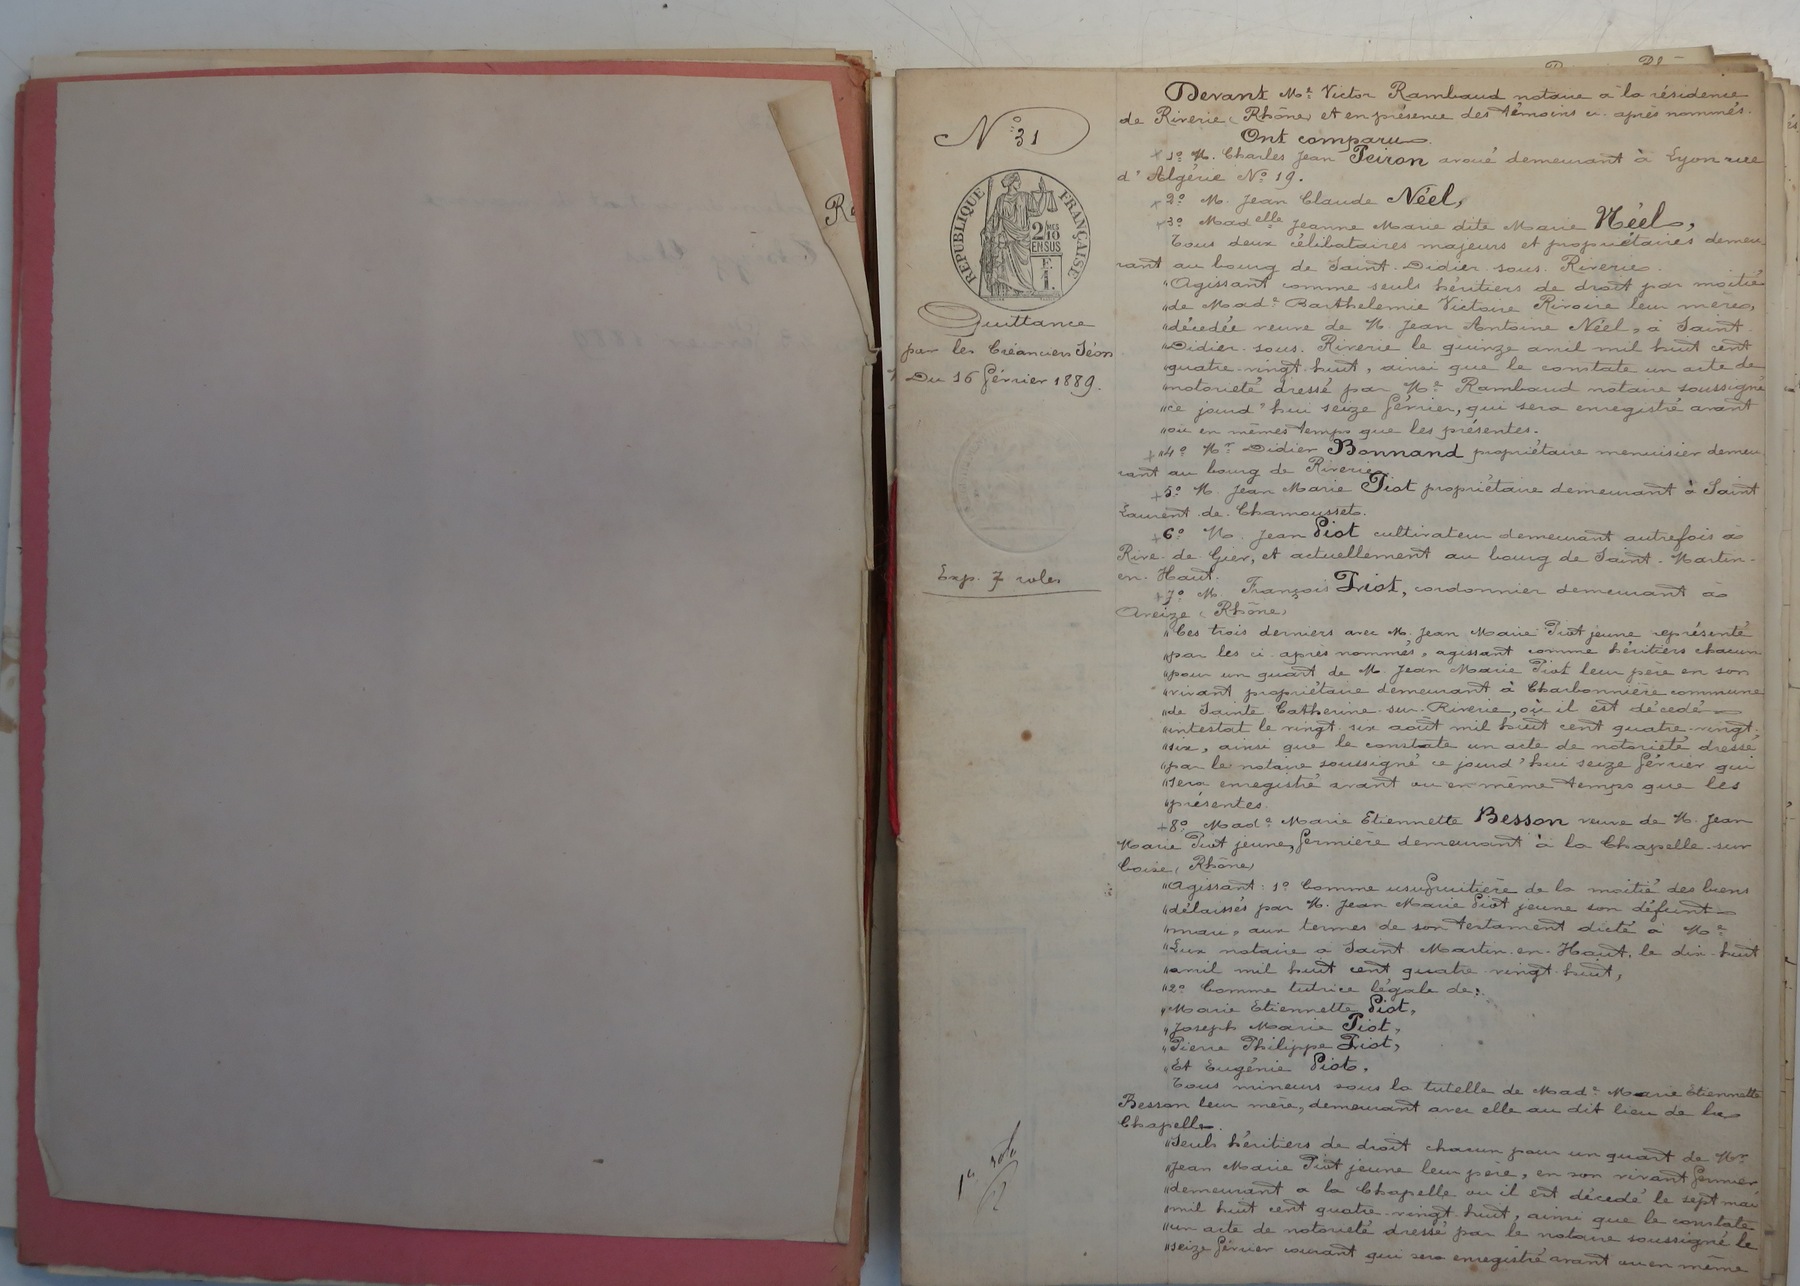 Re
No 31
RÉPUBLIQUE FRANÇAISE
2/10 MES
EN SUS
1 F.
Quittance
par les Créanciers Séon
Du 16 février 1889.
Exp. 7 roles
1er role
Devant Me Victor Rambaud notaire à la résidence
de Riverie (Rhône) et en présence des témoins ci-après nommés.
Ont comparu
1o M. Charles Jean Peiron avoué demeurant à Lyon rue
d'Algérie No 19.
2o M. Jean Claude Néel,
3o Madelle Jeanne Marie dite Marie Néel,
Tous deux célibataires majeurs et propriétaires demeu-
rant au bourg de Saint-Didier-sous-Riverie.
"Agissant comme seuls héritiers de droit par moitié
"de Made Barthelemie Victoire Rivoire leur mère,
"décédée veuve de M. Jean Antoine Néel, à Saint-
"Didier-sous-Riverie le quinze avril mil huit cent
"quatre-vingt-huit, ainsi que le constate un acte de
"notoriété dressé par Me Rambaud notaire soussigné
"ce jourd'hui seize février, qui sera enregistré avant
"ou en mêmes temps que les présentes.
"4o Mr Didier Bonnand propriétaire menuisier demeu-
rant au bourg de Riverie.
5o M. Jean Marie Piot propriétaire demeurant à Saint
Laurent-de-Chamousset.
6o M. Jean Piot cultivateur demeurant autrefois à
Rive-de-Gier, et actuellement au bourg de Saint-Martin-
en-Haut.
7o M. François Piot, cordonnier demeurant à
Aveize (Rhône)
"Ces trois derniers avec M. Jean Marie Piot jeune représenté
"par les ci-après nommés, agissant comme héritiers chacun
"pour un quart de M. Jean Marie Piot leur père en son
"vivant propriétaire demeurant à Charbonnière commune
"de Sainte Catherine-sur-Riverie, où il est décédé
"intestat le vingt-six août mil huit cent quatre-vingt-
"six, ainsi que le constate un acte de notoriété dressé
"par le notaire soussigné ce jourd'hui seize février qui
"sera enregistré avant ou en même temps que les
"présentes.
8o Made Marie Etiennette Besson veuve de M. Jean
Marie Piot jeune, fermière demeurant à la Chapelle-sur
Coise (Rhône)
"Agissant: 1o Comme usufruitière de la moitié des biens
"délaissés par M. Jean Marie Piot jeune son défunt
"mari, aux termes de son testament dicté à Me
"Lux notaire à Saint Martin-en-Haut, le dix-huit
"avril mil huit cent quatre-vingt-huit,
"2o Comme tutrice légale de:
"Marie Etiennette Piot,
"Joseph Marie Piot,
"Pierre Philippe Piot,
"Et Eugénie Piot.
Tous mineurs sous la tutelle de Made Marie Etiennette
Besson leur mère, demeurant avec elle au dit lieu de la
Chapelle.
"Seuls héritiers de droit chacun pour un quart de Mr
"Jean Marie Piot jeune leur père, en son vivant fermier
"demeurant a la Chapelle ou il est décédé le sept mai
"mil huit cent quatre-vingt-huit, ainsi que le constate
"un acte de notoriété dressé par le notaire soussigné le
"seize février courant qui sera enregistré avant ou en même